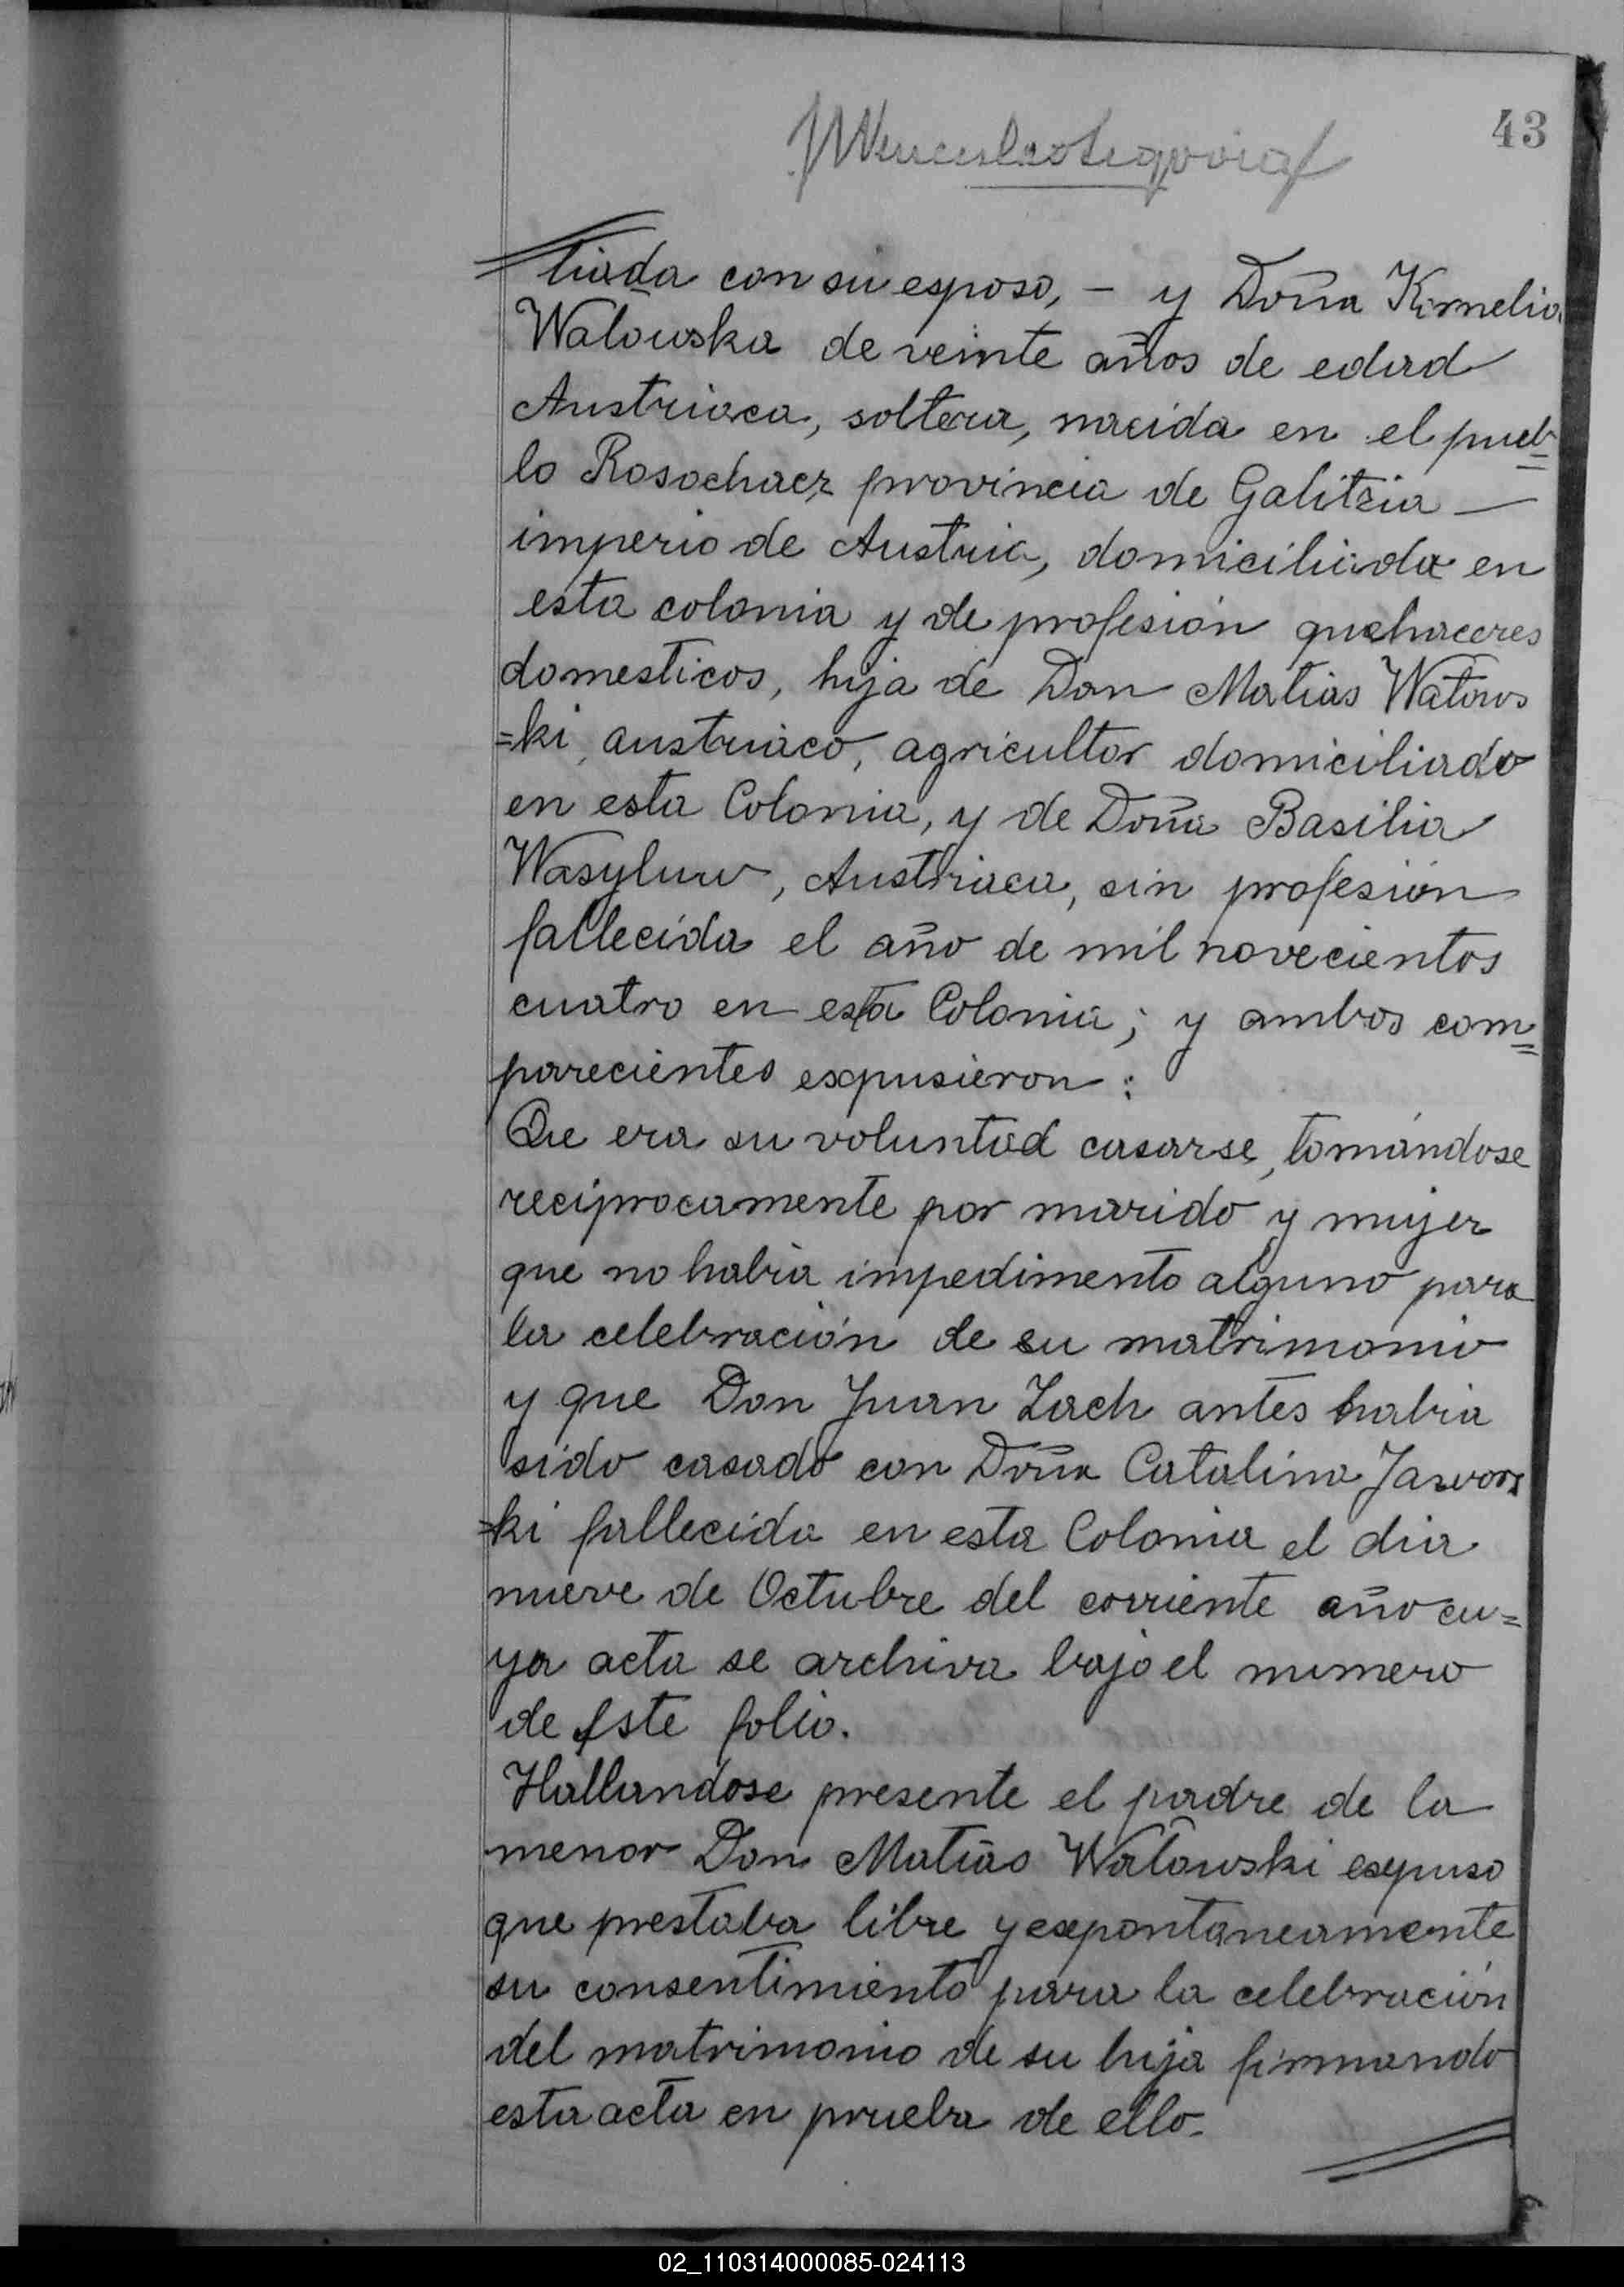 43
liada con su esposo, – y Doña Kornelia
Watowska de veinte años de edad
Austriaca, soltera, nacida en el pueb=
lo Rosochacz provincia de Galitzia —
imperio de Austria, domiciliada en
esta colonia y de profesión quehaceres
domesticos, hija de Don Matias Watows
=ki, austriaco, agricultor domiciliado
en esta Colonia, y de Doña Basilia
Wasyluw, Austriaca, sin profesión
fallecida el año de mil novecientos
cuatro en esta Colonia; y ambos com=
parecientes expusieron:
Que era su voluntad casarse, tomándose
reciprocamente por marido y mujer
que no habia impedimento alguno para
la celebración de su matrimonio
y que Don Juan Zach antes habia
sido casado con Doña Catalina Jawors
=ki fallecida en esta Colonia el dia
nueve de Octubre del corriente año cu=
ya acta se archiva bajo el numero
de este folio.
Hallandose presente el padre de la
menor Don Matias Watowski expuso
que prestaba libre y expontaneamente
su consentimiento para la celebración
del matrimonio de su hija firmando
esta acta en prueba de ello.
02_110314000085-024113